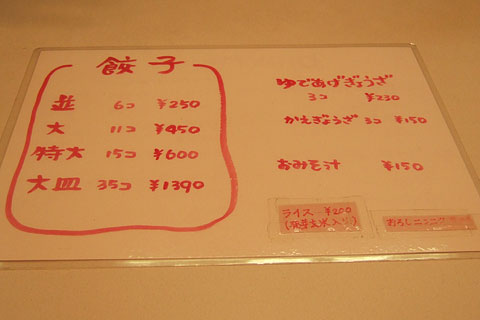 餃子
並 6コ ¥250
大 11コ ¥450
特大 15コ ¥600
大皿 35コ ¥1390
ゆであげぎょうざ
3コ ¥230
かえぎょうざ 3コ ¥150
おみそ汁 ¥150
ライス ¥200
(発芽玄米入り)
おろしニンニク